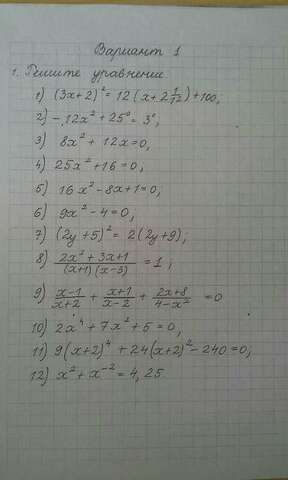 Вариант 1
1. Решите уравнение
1) (3x+2)² = 12(x+2 1/12)+100,
2) -12x²+25⁰=3⁰,
3) 8x²+12x=0,
4) 25x²+16=0,
5) 16x²-8x+1=0,
6) 9x²-4=0,
7) (2y+5)²=2(2y+9);
8) (2x²+3x+1)/((x+1)(x-3)) = 1;
9) (x-1)/(x+2) + (x+1)/(x-2) + (2x+8)/(4-x²) = 0
10) 2x⁴+7x²+5=0,
11) 9(x+2)⁴+24(x+2)²-240=0,
12) x²+x⁻²=4,25.